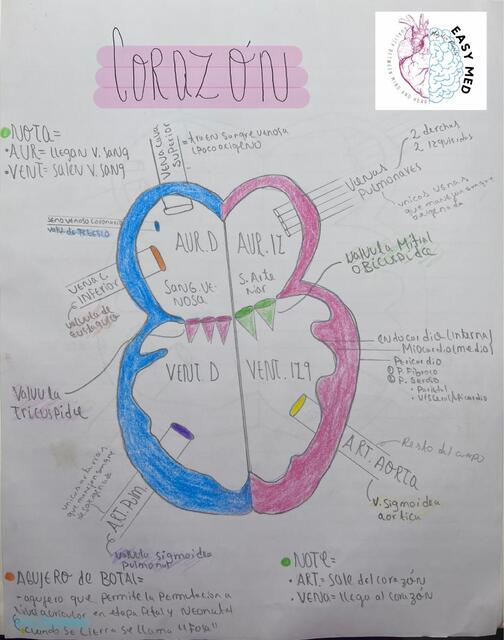 CORAZÓN
EASY MED
NOTA=
• AUR= llegan V. SANG
• VENT= salen V. SANG
VENA CAVA
SUPERIOR
= traen sangre venosa
(Poco oxigeno)
VENAS
PULMONARES
2 derchas
2 izquierdas
unicas venas
que manejan sangre
oxigenada
seno venoso coronario
valv. de TEBESIO
VENA C.
INFERIOR
valvula de
eustaquio
AUR.D
AUR.IZ
SANG. VE-
NOSA
S. Arte
rial
VALVULA Mitral
O BICUSPIDEA
VENT. D
VENT. IZQ
endocardio (interna)
Miocardio (medio)
Pericardio
① P. Fibroso
② P. Seroso
• Parietal
• Visceral/Epicardio
Valvula
TRICUSPIDE
unicas arterias
que manejan sangre
desoxigenada
ART. PUM.
valvula sigmoidea
pulmonar
ART. AORTA
= Resto del cuerpo
V. Sigmoidea
aortica
AGUJERO de BOTAL=
- agujero que permite la Permutación
auricular en etapa fetal y neonatal
cuando se cierra se llama "FOSA"
NOTE=
• ART= Sale del corazón
• VENA= llega al corazón